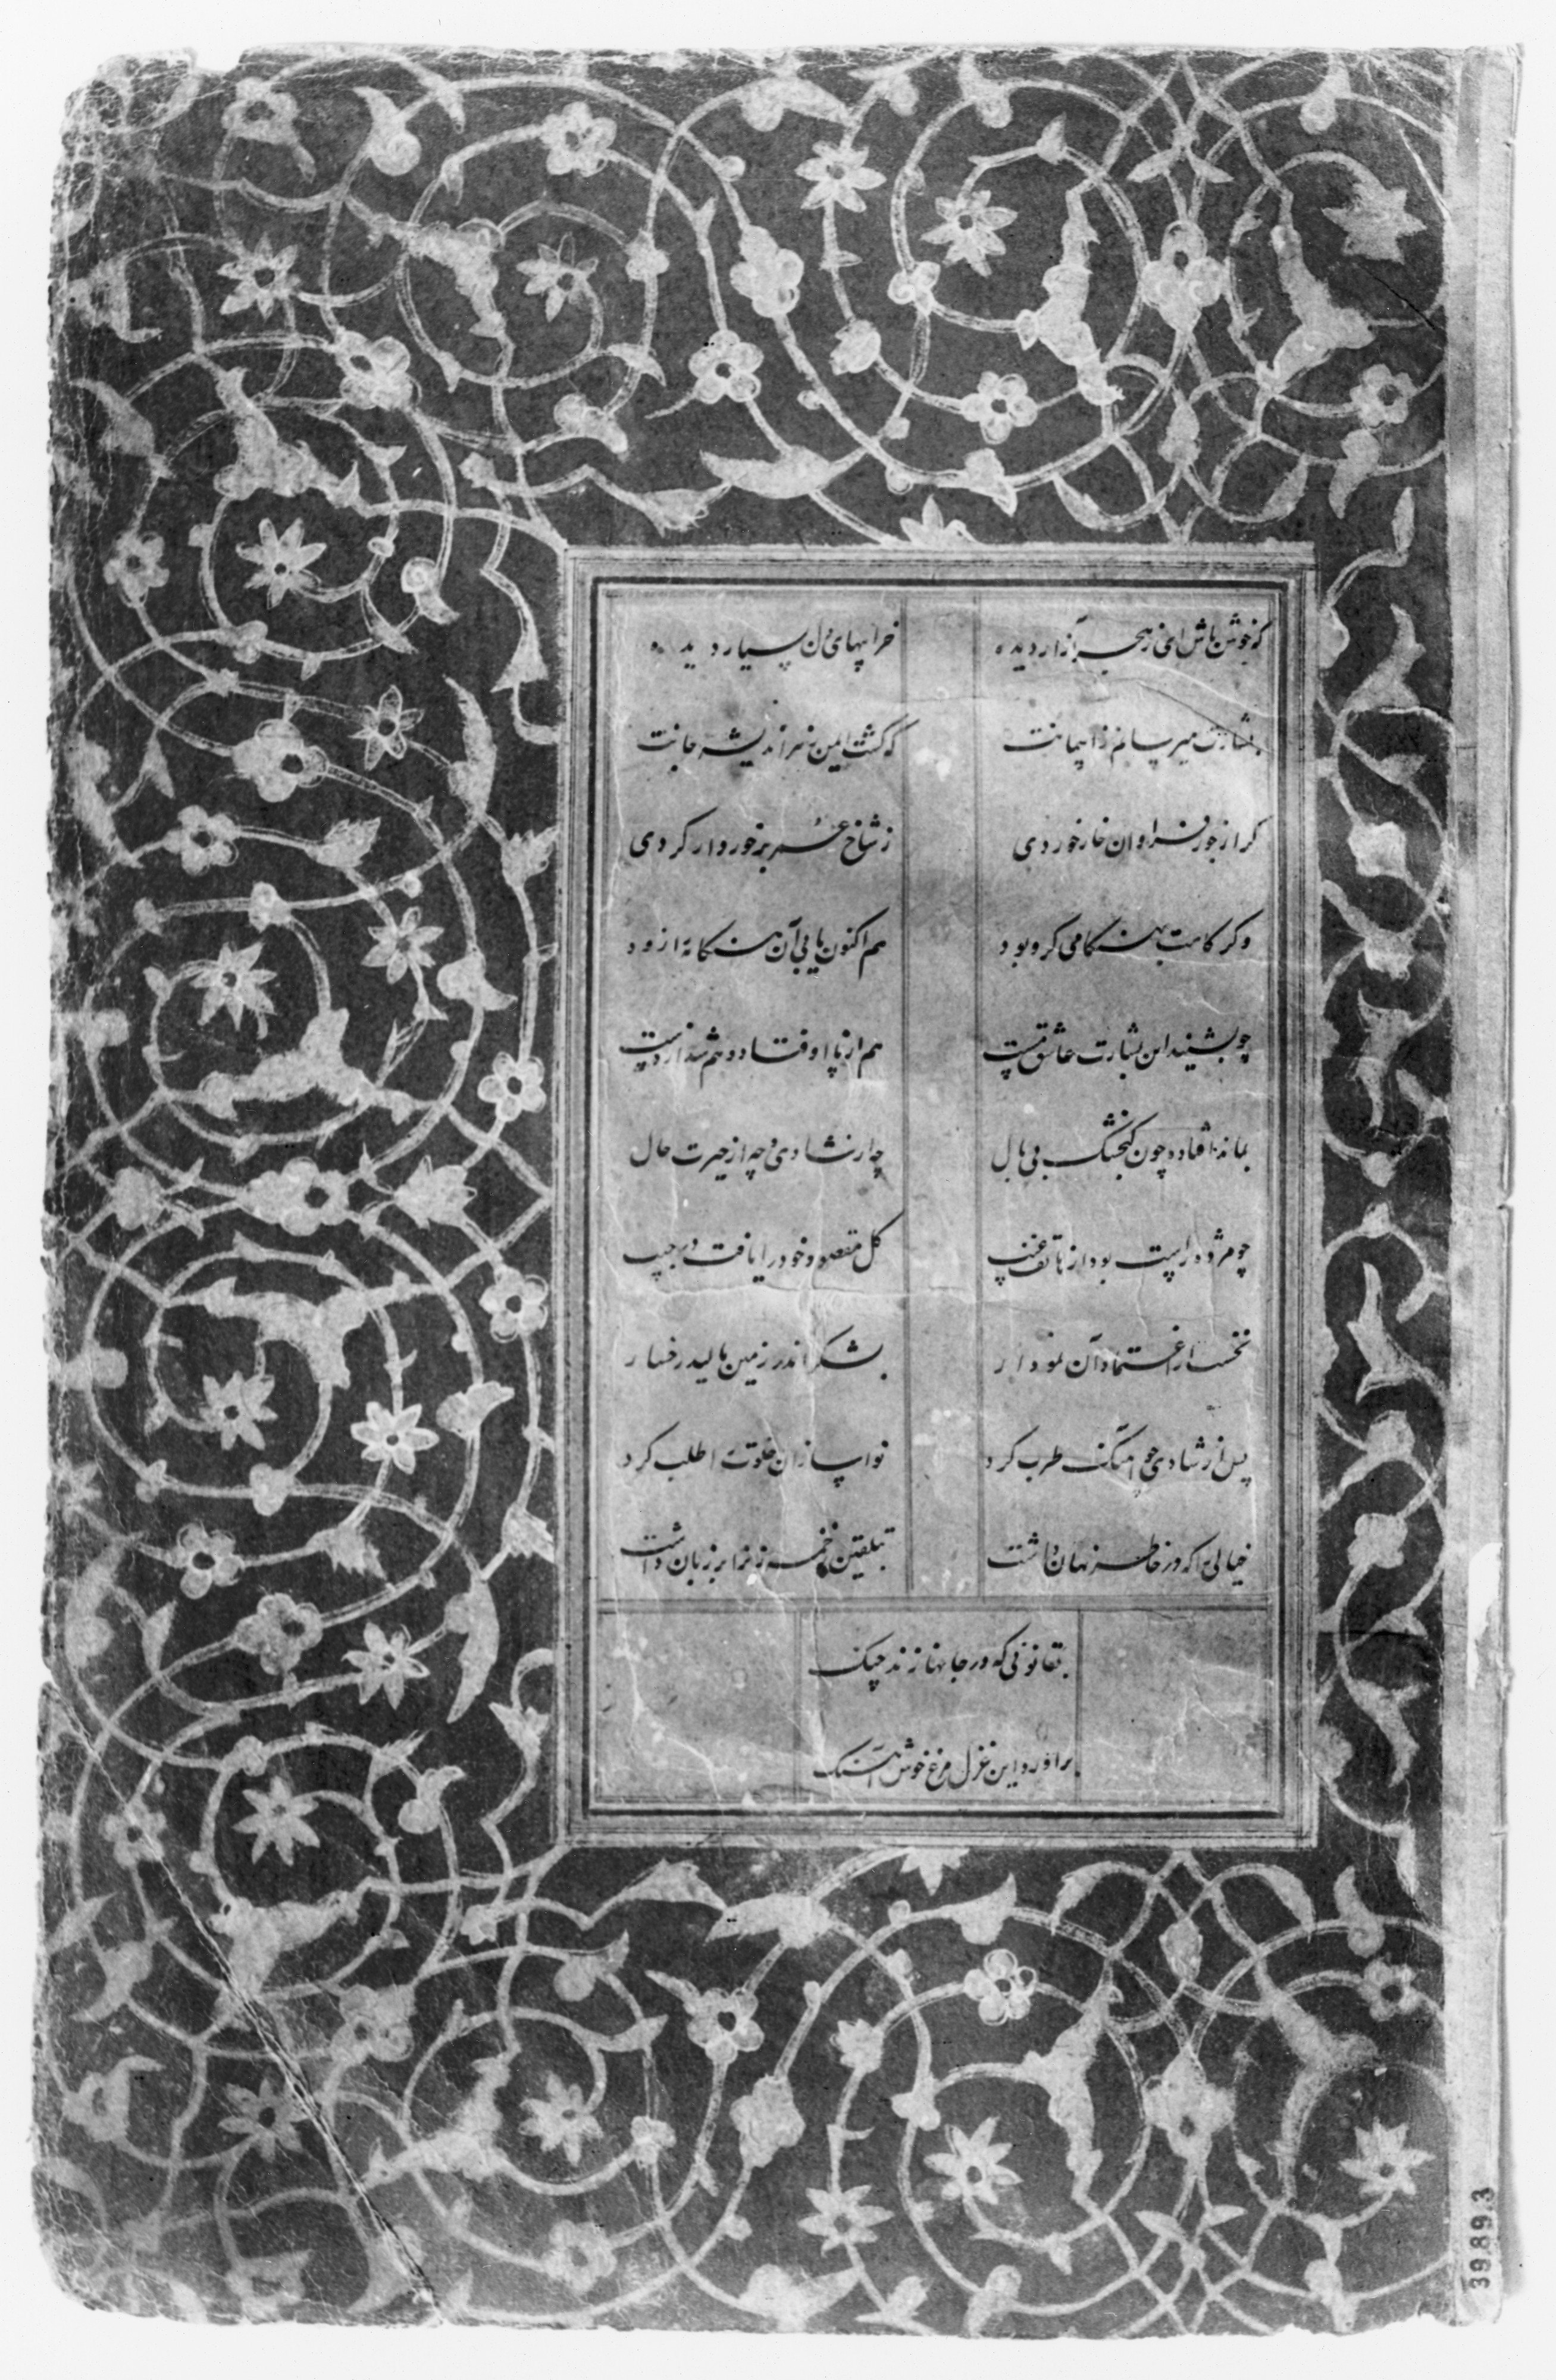 که خوش باش ای ز هجر آزار دیده خرابیهای دل بسیار دیده
بشارت میرسانم ز آسمانت که گشت ایمن سر از اندیشه جانت
گر از جور فراوان خار خوردی ز شاخ عمر برخوردار گردی
وگر کامت بهنگامی گرو بود هم اکنون یابی آن هنگامه از زود
چو بشنید این بشارت عاشق مست هم از پا اوفتاد و هم شد از دست
بمانده اوفتاده چون گنجشک بی بال چه از شادی و چه از حیرت حال
چو مژده راست بود از هاتف غیب گل مقصود خود را یافت در جیب
نخست از اغتماد آن نمودار بشکر اندر زمین مالید رخسار
پس از شادی چو آهنگ طرب کرد نواسازان خلوت را طلب کرد
خیالی را که در خاطر نهان داشت بتلقین نغمه زن را بر زبان داشت
بقانونی که در جانها زند چنگ
برآورد این غزل مرغ خوش آهنگ
39893